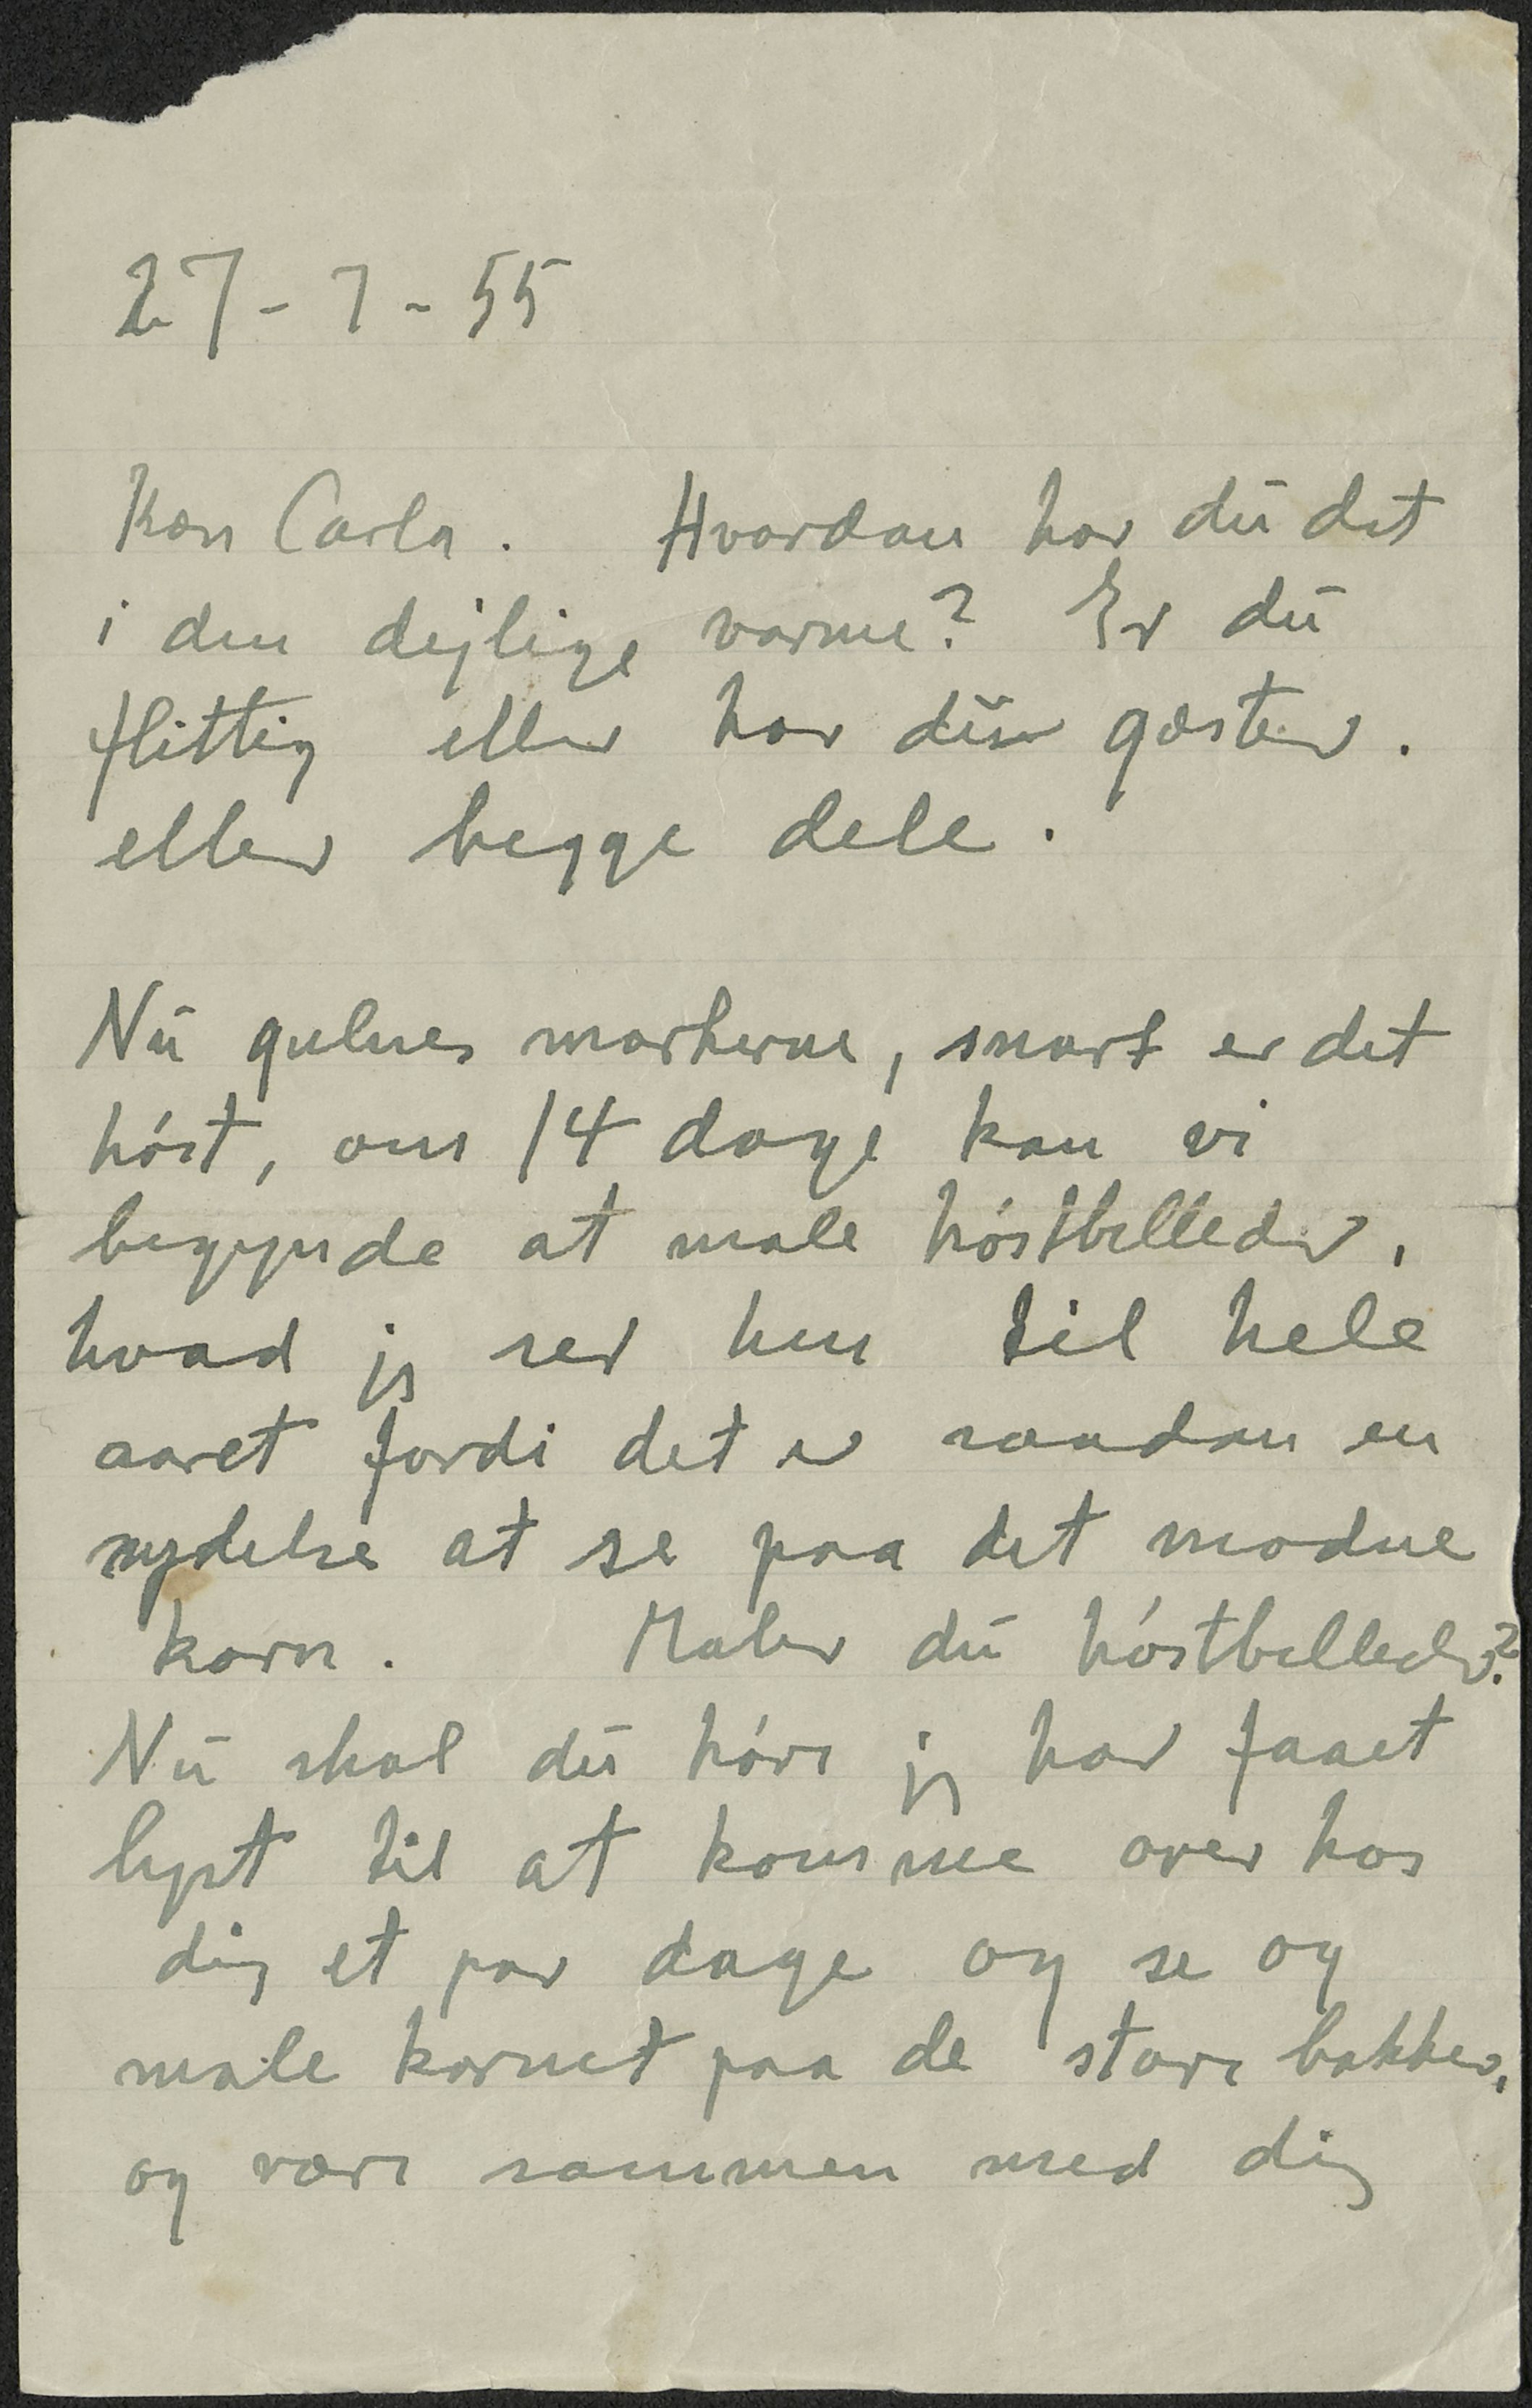 27-7-55
Kær Carla. Hvordan har du det
i den dejlige varme? Er du
flittig eller har du gæster.
eller begge dele.
Nu gulnes markerne, snart er det
høst, om 14 dage kan vi
begynde at male høstbilleder,
hvad jeg ser hen til hele
aaret fordi det er saadan en
nydelse at se paa det modne
korn. Maler du høstbilleder?
Nu skal du høre jeg har faaet
lyst til at komme over hos
dig et par dage og se og
male kornet paa de store bakker,
og være sammen med dig